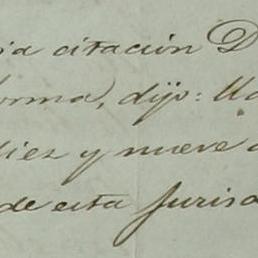 ia citación D
orma, dijo: Ua
diez y nueve a
de esta Jurisd